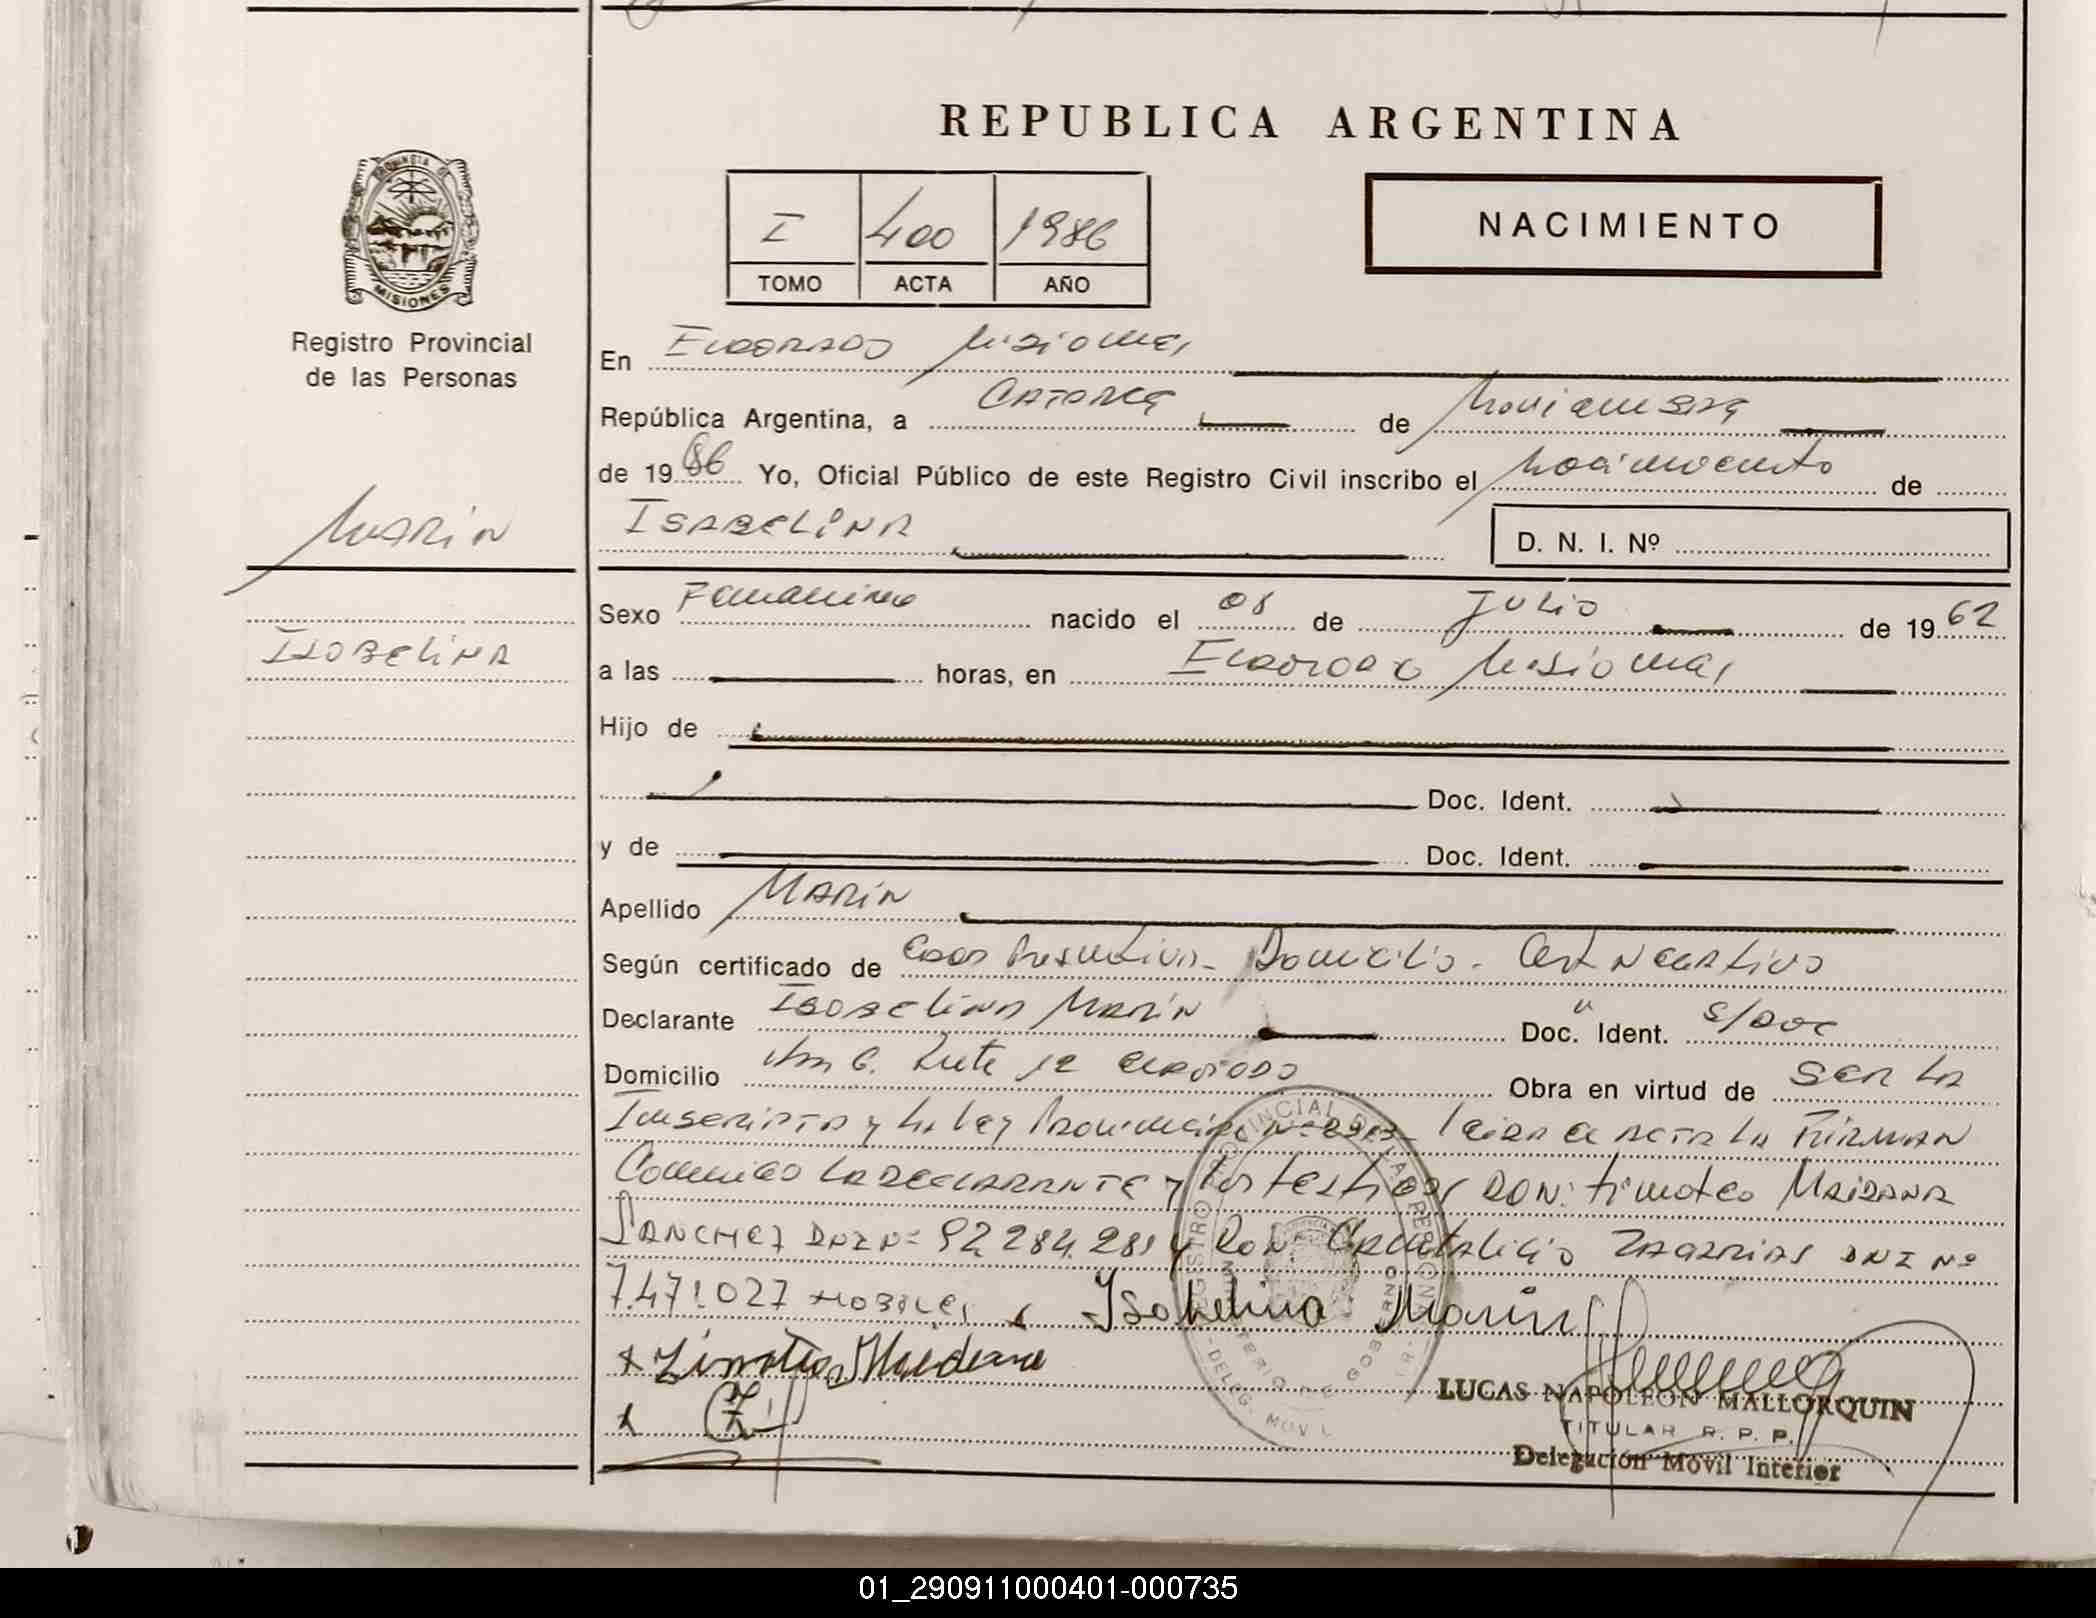 REPUBLICA ARGENTINA
PROVINCIA D
MISIONES
Registro Provincial
de las Personas
I 400 1986
TOMO ACTA AÑO
NACIMIENTO
En Eldorado Misiones
República Argentina, a Catorce de Noviembre
de 1986 Yo, Oficial Público de este Registro Civil inscribo el Nacimiento de
ISABELINA D. N. I. Nº
MARIN
ISABELINA
Sexo Femenino nacido el 08 de Julio de 1962
a las horas, en Eldorado Misiones
Hijo de
Doc. Ident.
y de Doc. Ident.
Apellido MARIN
Según certificado de Edad Presuntiva - Domicilio - Cert Negativo
Declarante Isabelina Marin Doc. Ident. S/Doc
Domicilio Km 6. Ruta 12 Eldorado Obra en virtud de Ser la
Inscripta y la ley Provincial Nº Leida el Acta la Firman
Conmigo la declarante y los testigos Don: Timoteo Maidana
Sanchez DNI Nº 92.284.289 y Don: Zacarias DNI Nº
7.471.027 Habiles x Isabelina Marin
x Timoteo Maidana
x
REGISTRO PROVINCIAL DE LAS PERSONAS
MINISTERIO DE GOBIERNO
DELEG. MOVIL
LUCAS NAPOLEON MALLORQUIN
TITULAR R. P. P.
Delegación Movil Interior
01_290911000401-000735